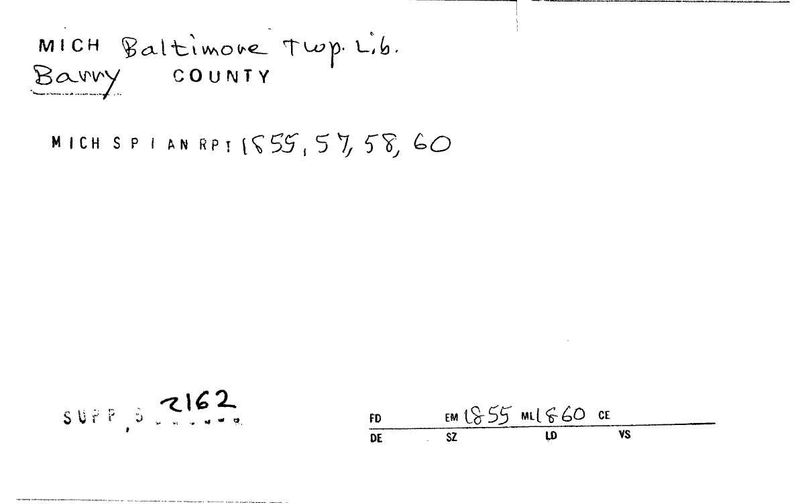 MICH Baltimore Twp. Lib.
Barry COUNTY
MICH S P I AN RPT 1855, 57, 58, 60
SUPP, S 2162
FD EM 1855 ML 1860 CE
DE SZ LD VS